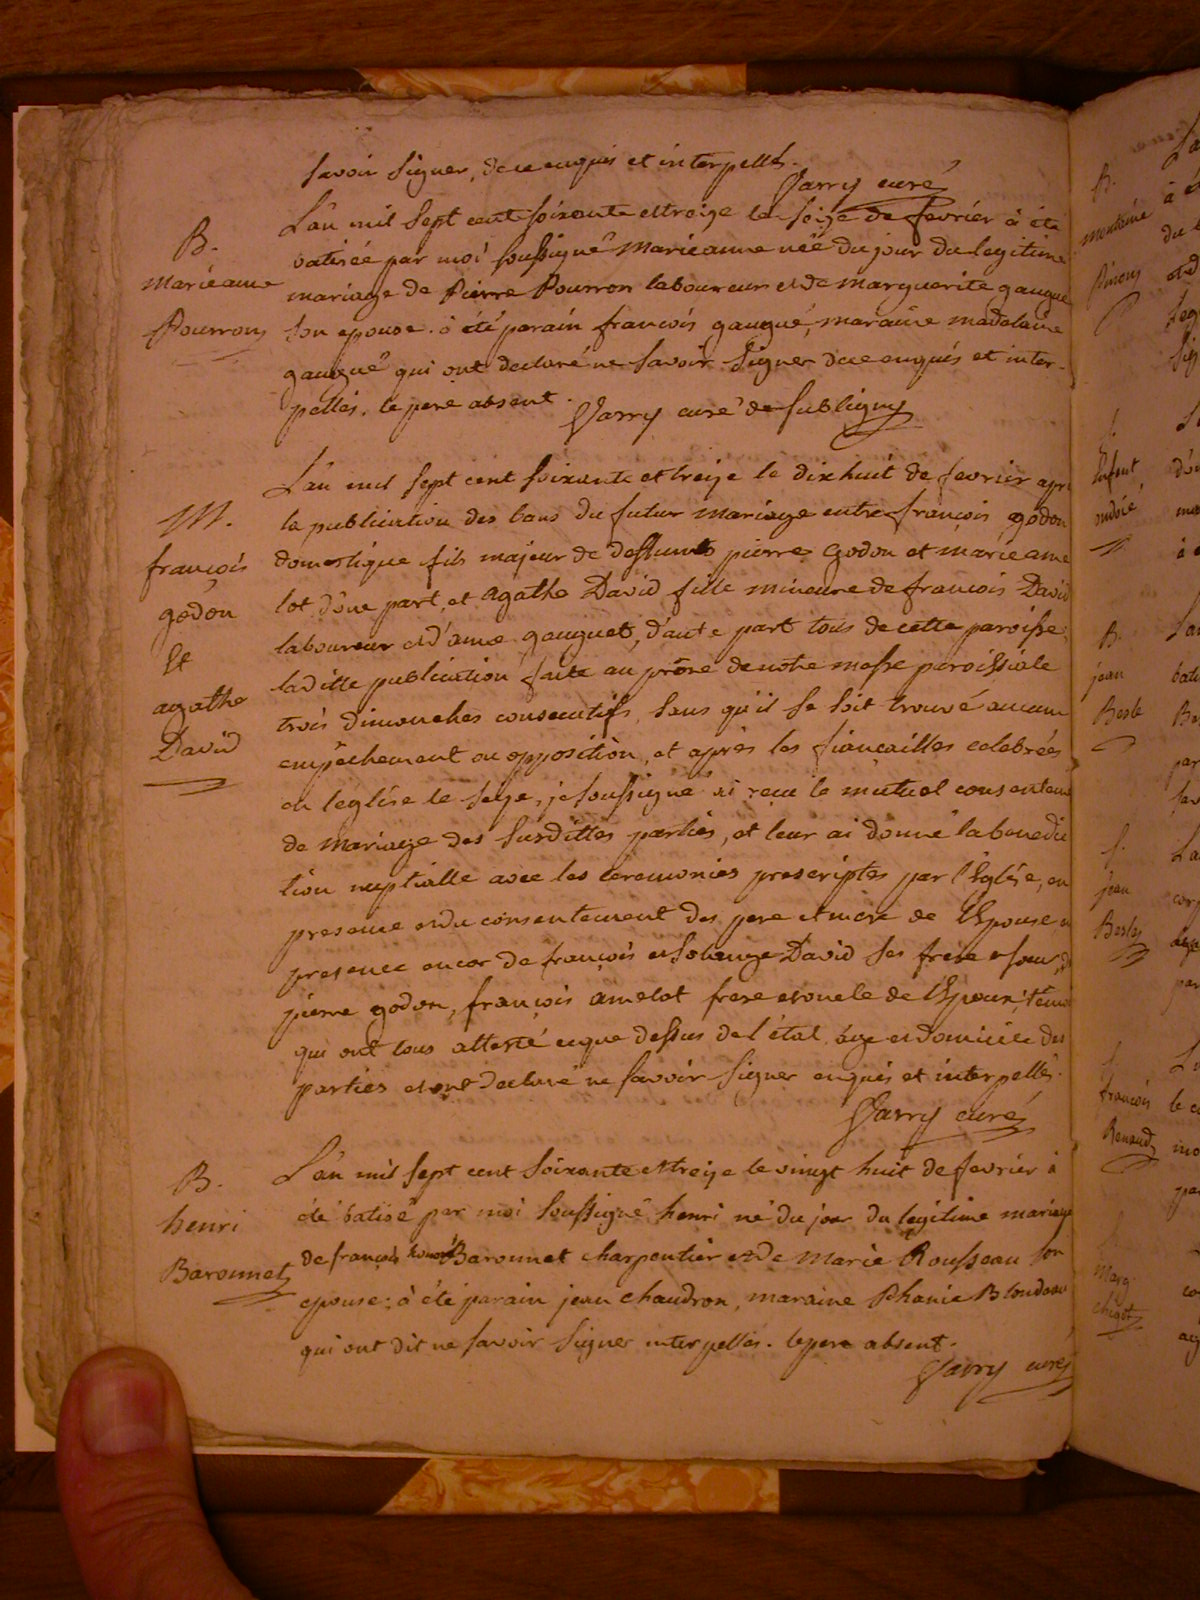 savoir signer, de ce enquis et interpellés.
Jarry curé
B.
marieanne
Pourron
L'an mil sept cent soixante et treize le seize de fevrier à été
batisée par moi soussigné marieanne néé du jour du legitime
mariage de Pierre Pourron laboureur et de marguerite gaugué
son epouse. à été parain francois gaugué, maraine madelaine
gaugué qui ont declaré ne savoir signer de ce enquis et inter-
pellés. le pere absent.
Jarry curé de subligny
M.
françois
godon
Et
agathe
David
L'an mil sept cent soixante et treize le dixhuit de fevrier apr
la publication des bans du futur mariage entre françois godon
domestique fils majeur de deffunts pierre Godon et marieame
lot d'une part, et Agathe David fille mineure de francois David
laboureur et d'anne gauguet, d'aute part tous de cette paroisse;
laditte publication faite au prône de notre messe paroissiale
trois dimanches consecutifs, sans qu'il se soit trouvé aucun
empêchement ou opposition, et après les fiancailles celebrées
en l'eglise le seize, je soussigné ai reçu le mutuel consentem
de mariage des susdittes parties, et leur ai donné la benedic
tion nuptialle avec les ceremonies prescriptes par l'Eglise, en
presence et du consentement des pere et mere de l'Epouse, en
presence encor de françois et solange David ses frere et soeur, de
pierre godon, françois amelot frere et oncle de l'Epoux, temoi
qui ont tous attesté ce que dessus de l'état, âge et domicile des
parties et ont declaré ne savoir signer enquis et interpellés.
Jarry curé
B.
henri
Baronnet
L'an mil sept cent soixante et treize le vingt huit de fevrier à
été batisé par moi soussigné henri né du jour du legitime mariage
de françois honoré Baronnet charpentier et de marie Rousseau son
epouse; à été parain jean chaudron, maraine Phanie Blondeau
qui ont dit ne savoir signer interpellés. le pere absent.
Jarry curé
B.
Enfant
ondoié
B.
jean
Besle
jean
Besles
françois
Renaud
Marg